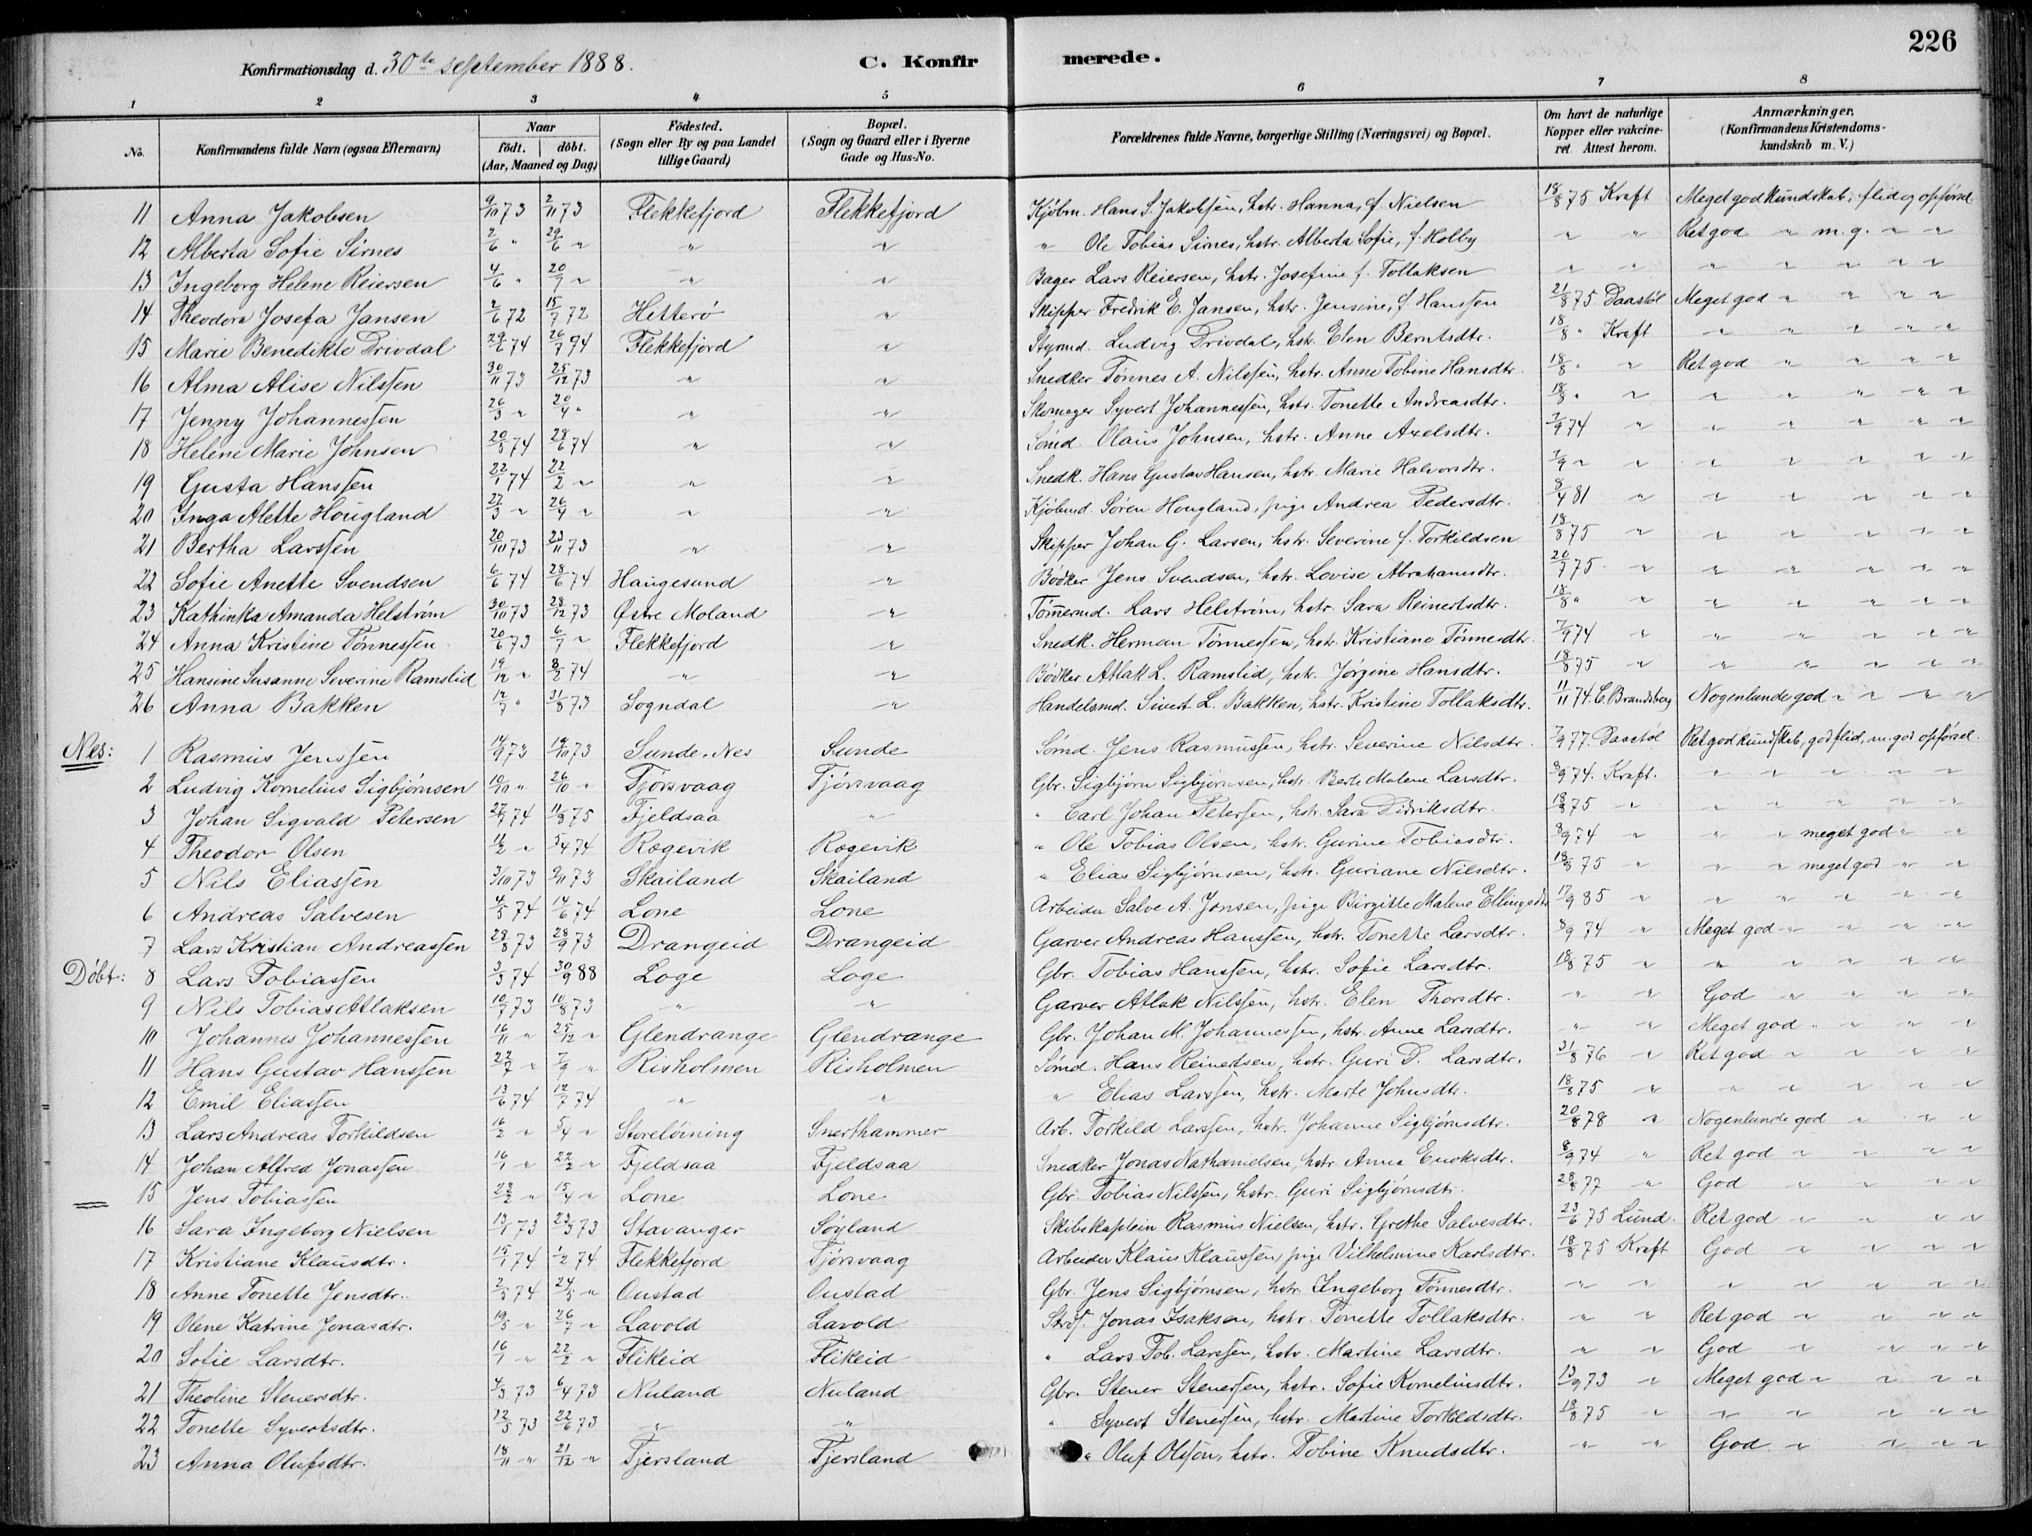 226
Konfirmationsdag d. 30te september 1888. C. Konfirmerede.
1 2 3 4 5 6 7 8
No. Konfirmandens fulde Navn (ogsaa Efternavn) Naar født. døbt. (Aar, Maaned og Dag) Fødested. (Sogn eller By og paa Landet tillige Gaard) Bopæl. (Sogn og Gaard eller i Byerne Gade og Hus-No. Forældrenes fulde Navne, borgerlige Stilling (Næringsvei) og Bopæl. Om havt de naturlige Kopper eller vakcineret. Attest herom. Anmærkninger. (Konfirmandens Kristendomskundskab m. V.)
11 Anna Jakobsen 9/10 73 2/11 73 Flekkefjord Flekkefjord Kjøbm. Hans S. Jakobsen, hstr. Hanna, f. Nielsen 18/8 75 Kraft Meget god kundskab, flid og opførsel
12 Alberta Sofie Sirnes 2/6 " 29/6 " " " " Ole Tobias Sirnes, hstr. Alberta Sofie, f. Holby " " Ret god " m. g. " "
13 Ingeborg Helene Reiersen 4/6 " 20/7 " " " Bager Lars Reiersen, hstr. Josefine f. Tollaksen " " " " " " "
14 Theodora Josefa Jansen 2/6 72 15/7 72 Hitterø " Skipper Fredrik E. Jansen, hstr. Jensine, f. Hanssen 21/8 75 Daastøl Meget god " " " "
15 Marie Benedikte Drivdal 29/6 74 26/7 94 Flekkefjord " Styrmd. Ludvig Drivdal, hstr. Elen Berntsdtr. 18/8 " Kraft " " " " "
16 Alma Alise Nilssen 30/11 73 25/12 73 " " Snedker Tønnes A. Nilssen, hstr. Anne Tobine Hansdtr. 18/8 " " Ret god " " " "
17 Jenny Johannessen 26/3 " 20/4 " " " Skomager Syvert Johannessen, hstr. Tonette Andreasdtr. 18/8 " " " " " " "
18 Helene Marie Johnsen 20/5 74 28/6 74 " " Sømd. Olaus Johnsen, hstr. Anne Axelsdtr. 7/9 74 " " " " " "
19 Gusta Hanssen 22/1 74 22/2 " " " Snedk. Hans Gustav Hansen, hstr. Marie Halvorsdtr. 7/9 " " " " " " "
20 Inga Alette Hougland 27/3 " 26/4 " " " Kjøbmd. Søren Hougland, pige Andrea Pedersdtr. 8/4 81 " " " " " "
21 Bertha Larssen 20/10 73 23/11 73 " " Skipper Johan G. Larsen, hstr. Severine f. Torkildsen 18/8 75 " " " " " "
22 Sofie Anette Svendsen 6/6 74 28/6 74 Haugesund " Bødker Jens Svendsen, hstr. Lovise Abrahamsdtr. 20/7 75 " " " " " "
23 Kathinka Amanda Helstrøm 30/10 73 28/12 73 Østre Moland " Tømermd. Lars Helstrøm, hstr. Sara Reinertsdtr. 18/8 " " " " " " "
24 Anna Kristine Tønnessen 20/6 73 6/7 " Flekkefjord " Snedk. Herman Tønnessen, hstr. Kristiane Tønnesdtr. 7/9 74 " " " " " "
25 Hansine Susanne Severine Ramslid 19/12 " 8/2 74 " " Bødker Atlak L. Ramslid, hstr. Jørgine Hansdtr. 18/8 75 " " " " " "
26 Anna Bakken 12/7 " 31/8 73 Sogndal " Handelsmd. Sivert L. Bakken, hstr. Kristine Tollaksdtr. 11/11 74. C. Brandsberg Nogenlunde god " " " "
Nes: 1 Rasmus Jenssen 14/9 73 19/10 73 Sunde. Nes Sunde Sømd. Jens Rasmussen, hstr. Severine Nilsdtr. 7/9 77. Daastøl Ret god kundskab, god flid, m. god opførsel.
2 Ludvig Kornelius Sigbjørnsen 10/10 " 26/10 " Tjørsvaag Tjørsvaag Gbr. Sigbjørn Sigbjørnsen, hstr. Berte Malene Larsdtr. 8/9 74. Kraft. " " " " "
3 Johan Sigvald Petersen 27/7 74 11/8 75 Fjeldsaa " " Carl Johan Petersen, hstr. Sara Didriksdtr. 18/8 75 " " " " " "
4 Theodor Olsen 11/2 " 5/4 74 Rogevik Rogevik " Ole Tobias Olsen, hstr. Gurine Tobiasdtr. 8/9 74 " " " meget god " "
5 Nils Eliassen 3/10 73 9/11 73 Skailand Skailand " Elias Sigbjørnsen, hstr. Guriane Nilsdtr. 18/8 75 " " " meget god " "
6 Andreas Salvesen 4/5 74 14/6 74 Lone Lone Arbeider Salve A. Jonsen, pige Birgitte Malene Ellingsdtr. 17/9 85 " " " " " "
7 Lars Kristian Andreassen 28/8 73 28/9 73 Drangeid Drangeid Garver Andreas Hanssen, hstr. Tonette Larsdtr. 8/9 74 " Meget god " " " "
Døbt: 8 Lars Tobiassen 3/3 74 30/9 88 Loge Loge Gbr. Tobias Hanssen, hstr. Sofie Larsdtr. 18/8 75 " " " " " "
9 Nils Tobias Atlaksen 10/7 73 10/8 73 " " Garver Atlak Nilssen, hstr. Elen Thorsdtr. " " God " " " "
10 Johannes Johannessen 16/11 " 25/12 " Glendrange Glendrange Gbr. Johan M. Johannessen, hstr. Anne Larsdtr. " " Meget god " " " "
11 Hans Gustav Hanssen 22/7 " 7/9 " Risholmen Risholmen Sømd. Hans Reinertsen, hstr. Guri D. Larsdtr. 31/8 76 " Ret god " " " "
12 Emil Eliassen 13/6 74 12/7 74 " " " Elias Larssen, hstr. Marte Johnsdtr. 18/8 75 " " " " " "
13 Lars Andreas Torkildsen 16/2 " 5/4 " Storeløining Snerthammer Arb. Torkild Larssen, hstr. Johanne Sigbjørnsdtr. 20/8 78 " Nogenlunde god " " " "
14 Johan Alfred Jonassen 16/1 " 22/2 " Fjeldsaa Fjeldsaa Snedker Jonas Nathanielsen, hstr. Anna Enoksdtr. 8/9 74 " Ret god " " " "
15 Jens Tobiassen 22/2 " 15/4 " Lone Lone Gbr. Tobias Nilssen, hstr. Guri Sigbjørnsdtr. 28/8 77 " God " " " "
16 Sara Ingeborg Nielsen 13/1 73 23/3 73 Stavanger Søyland Skibskaptein Rasmus Nielsen, hstr. Grethe Salvesdtr. 23/6 75 Lund. Ret god " " " "
17 Kristiane Klausdtr. 15/1 74 1/2 74 Flekkefjord Tjørsvaag Arbeider Klaus Klaussen, pige Vilhelmine Karlsdtr. 18/8 75 Kraft God " " " "
18 Anne Tonette Jensdtr. 2/5 74 24/5 " Oustad Oustad Gbr. Jens Sigbjørnsen, hstr. Ingeborg Tønnesdtr. " " " " " " "
19 Olene Katrine Jonasdtr. 19/5 " 26/7 " Lavold Lavold Strøf. Jonas Isaksen, hstr. Tonette Tollaksdtr. " " Ret god " " " "
20 Sofie Larsdtr. 16/1 " 22/2 " Flikeid Flikeid " Lars Tob. Larssen, hstr. Martine Larsdtr. " " God " " " "
21 Theoline Stenersdtr. 4/3 73 6/4 73 Nuland Nuland Gbr. Stener Stenersen, hstr. Sofie Korneliusdtr. 13/9 73 " Meget god " " " "
22 Tonette Syvertsdtr. 12/5 73 22/6 73 " " " Syvert Stenersen, hstr. Martine Torkildsdtr. 18/8 75 " " " " " "
23 Anna Olufsdtr. 18/11 " 21/12 " Tjersland Tjersland " Oluf Olsson, hstr. Tobine Knudsdtr. " " God " " " "